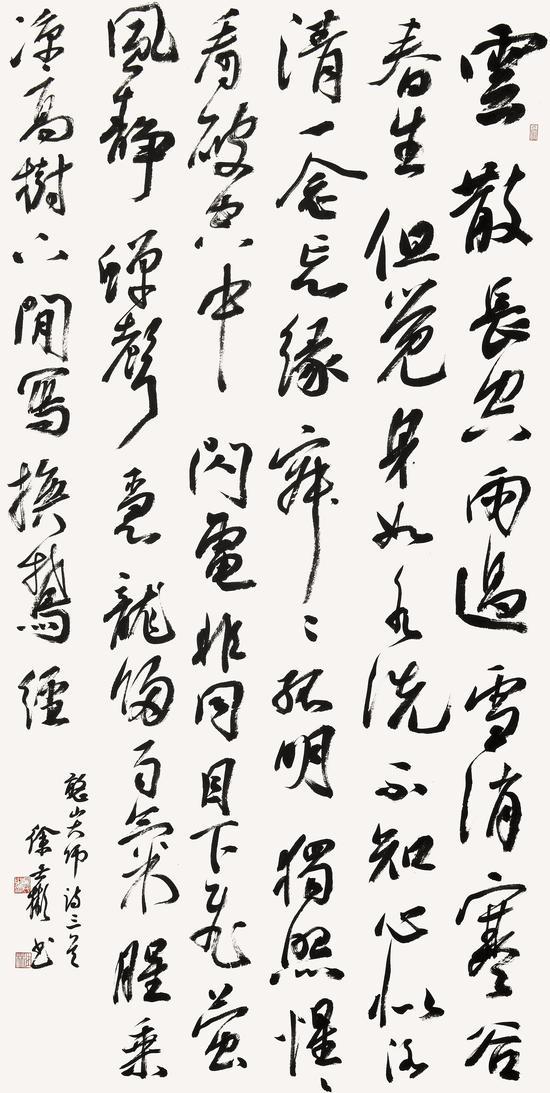 雲散長空雨過雪消寒谷
春生但覺身如水洗不知心似冰
清一念忘緣寂〻孤明獨照惺〻
看破空中閃電非同目下飛螢
風靜蟬聲急龍歸雨氣腥乘
涼高樹下閒寫換鵝經
憨山大師詩三首
徐書